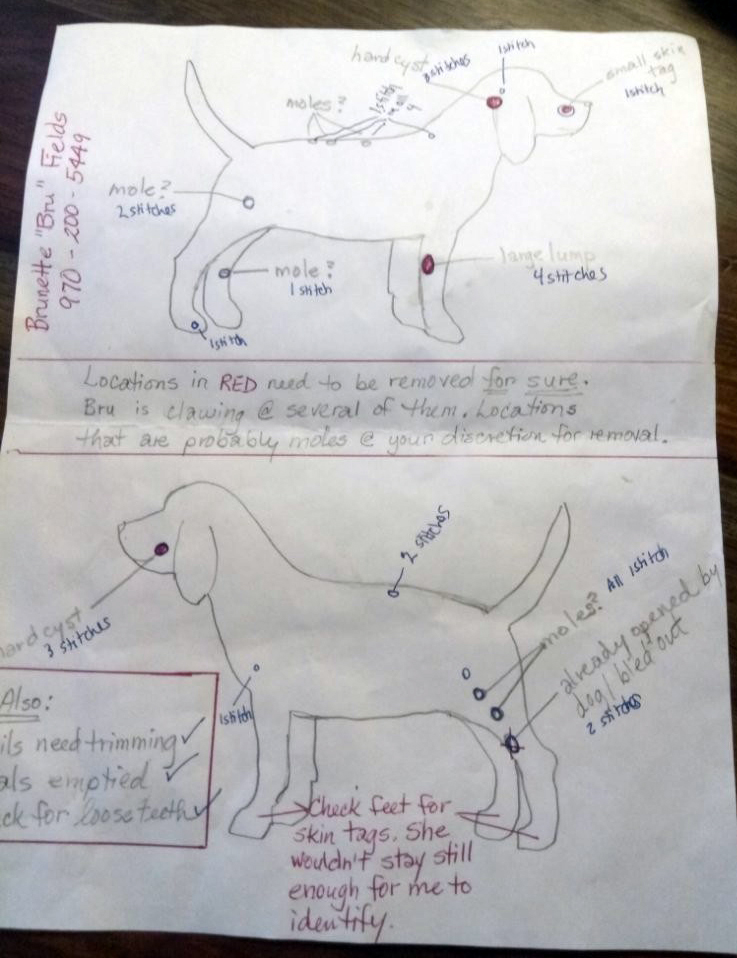 hard cyst
3 stitches
1 stitch
small skin
tag
1 stitch
moles?
1 stitch
in all
4
Brunette "Bru" Fields
970-200-5449
mole?
2 stitches
mole?
1 stitch
large lump
4 stitches
1 stitch
Locations in RED need to be removed for sure.
Bru is clawing @ several of them. Locations
that are probably moles @ your discretion for removal.
2 stitches
hard cyst
3 stitches
moles? All 1 stitch
already opened by
dog/bled out
2 stitches
1 stitch
Also:
ils need trimming ✓
als emptied ✓
ck for loose teeth ✓
Check feet for
skin tags. She
wouldn't stay still
enough for me to
identify.